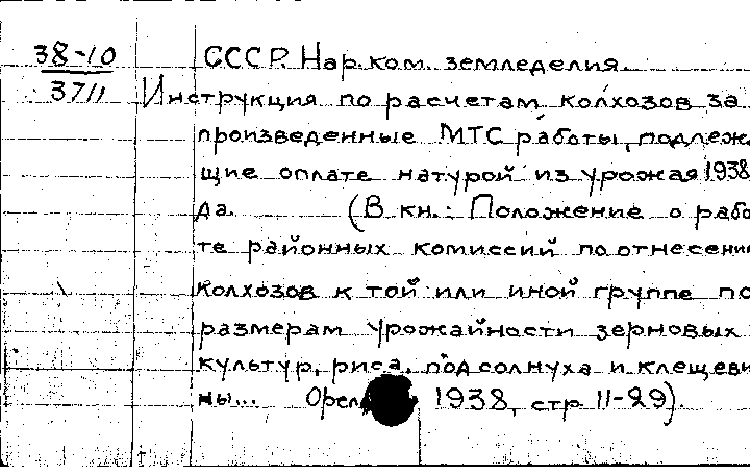 38-10
3711
СССР. Нар.ком. земледелия.
Инструкция по расчетам колхозов за
произведенные МТС работы, подлежа
щие оплате натурой из урожая 1938
да. (В кн.: Положение о рабо
те районных комиссий по отнесени
колхозов к той или иной группе по
размерам урожайности зерновых
культур, риса, подсолнуха и клещеви
ны... Орел 1938, стр 11-29).